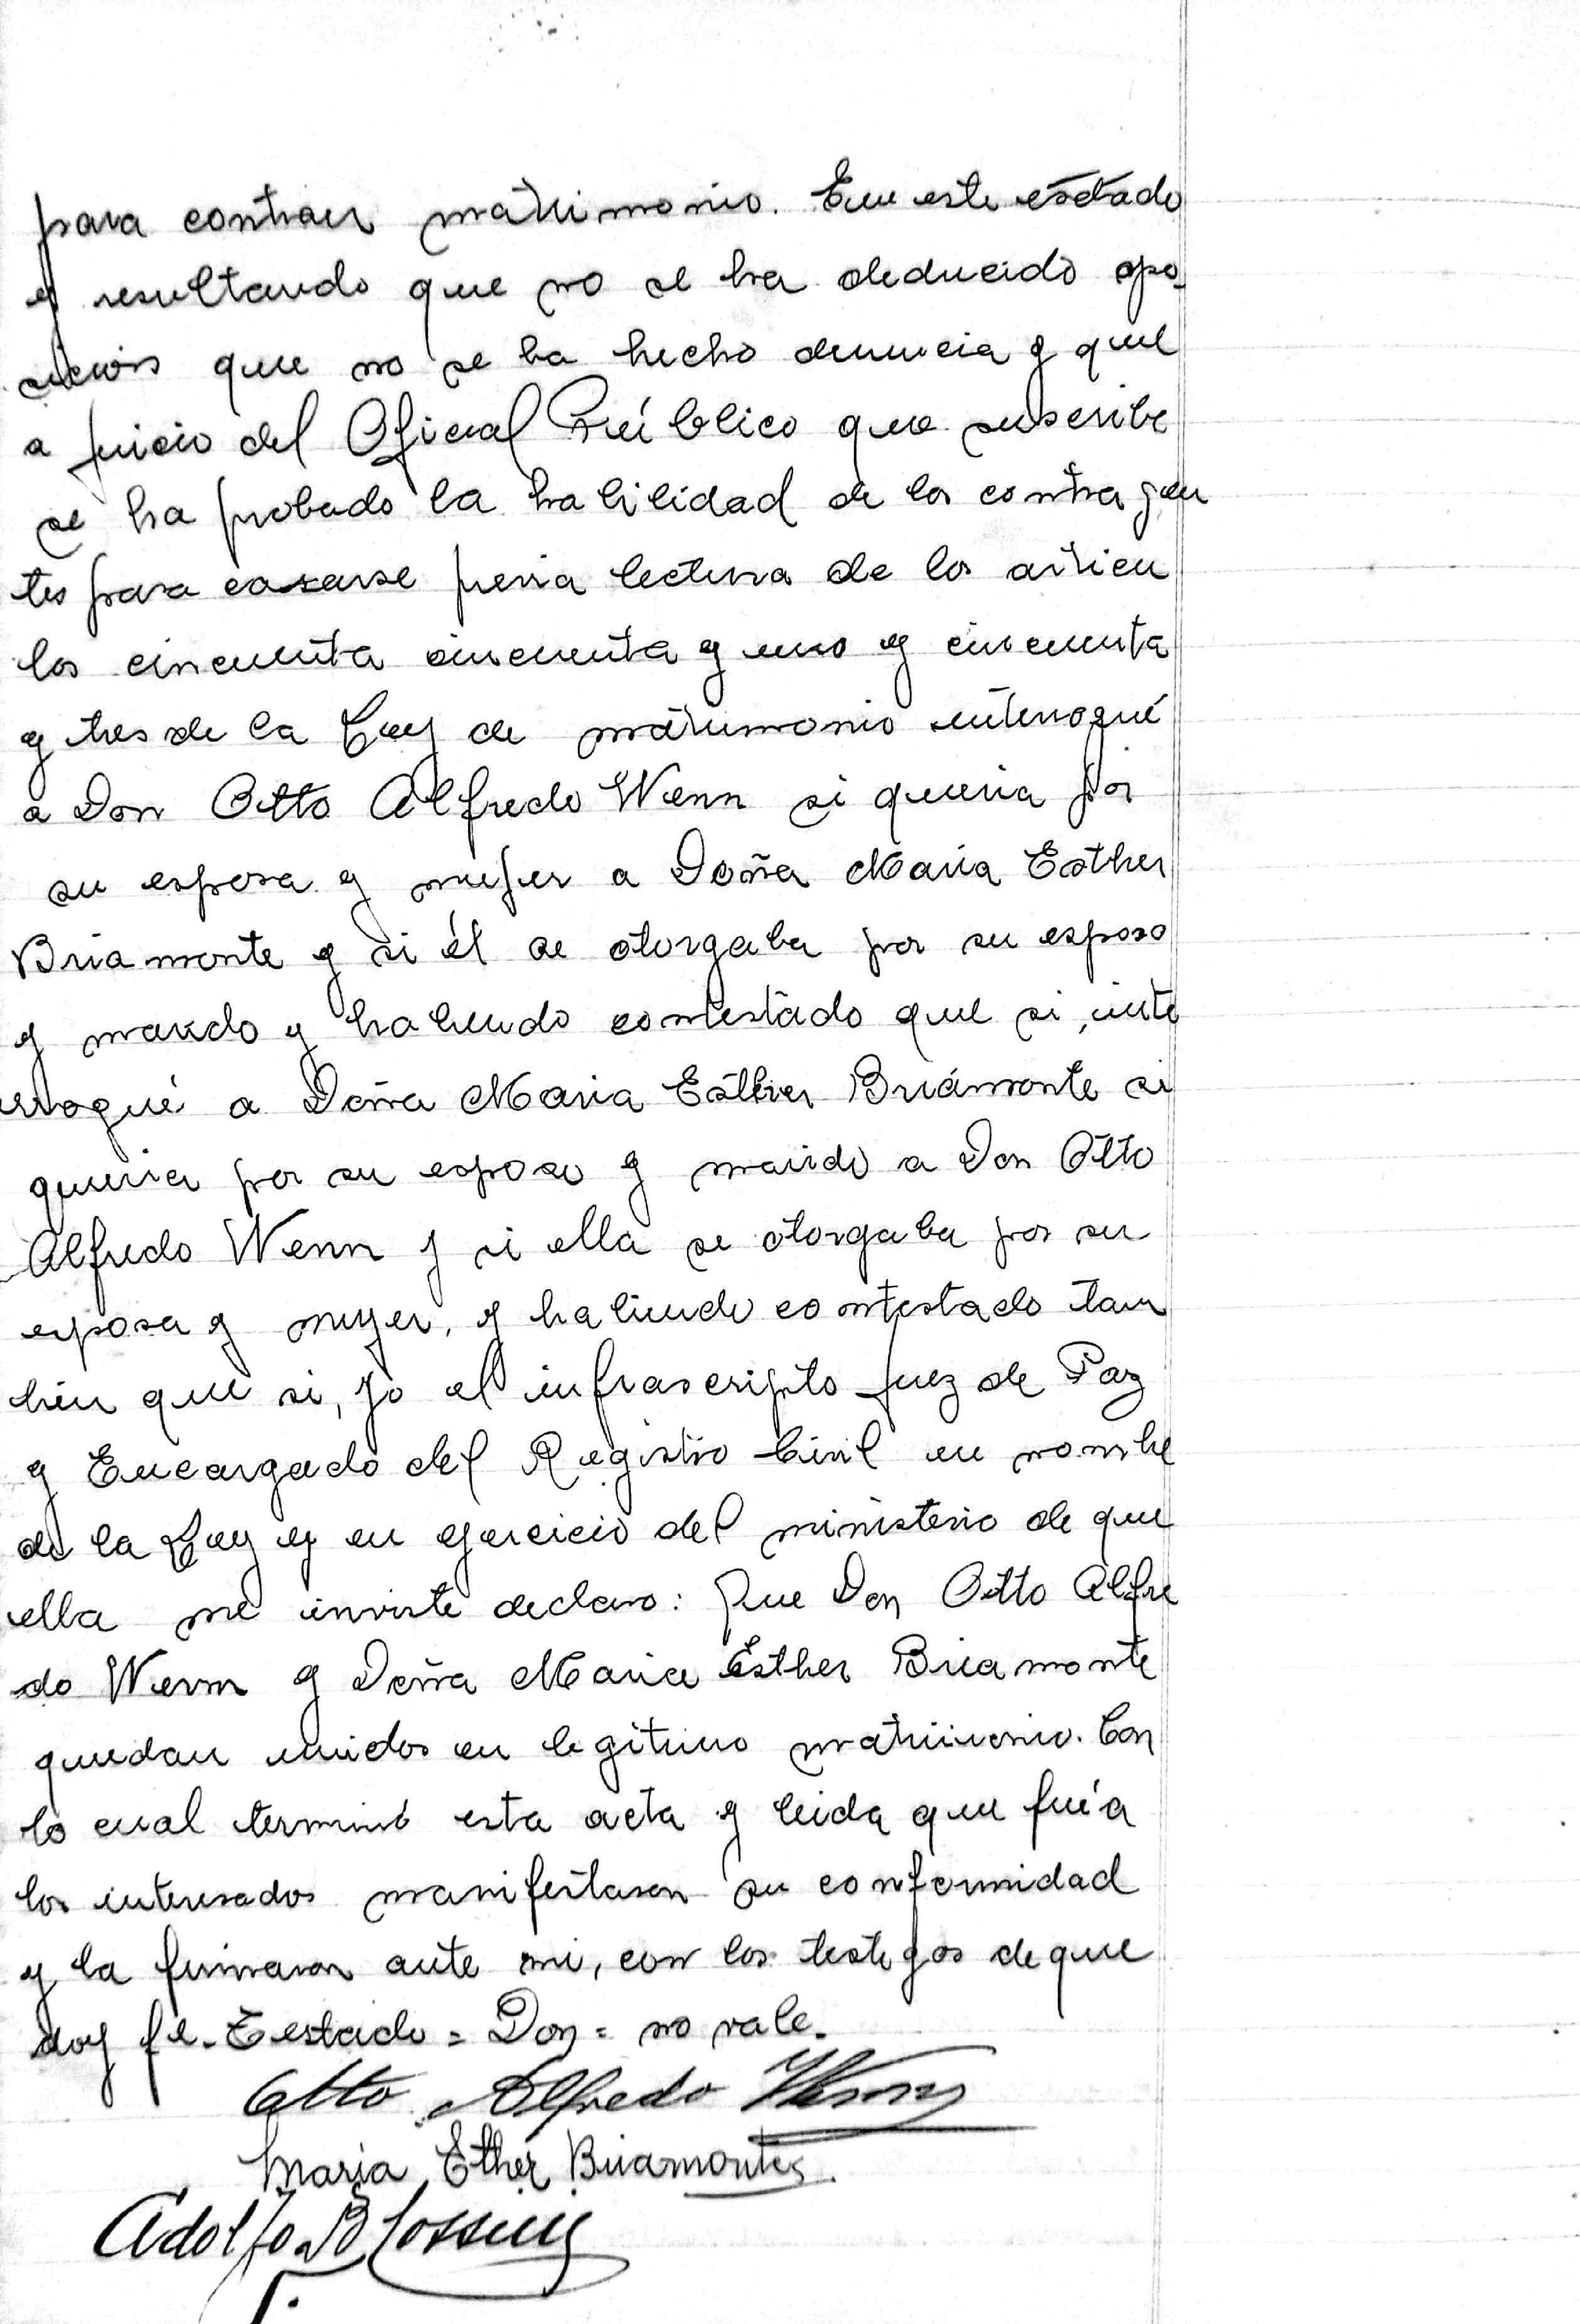 para contraer matrimonio. En este estado
y resultando que no se ha deducido opo
sicion que no se ha hecho denuncia y que
a juicio del Oficial Público que suscribe
se ha probado la habilidad de los contrayen
tes para casarse previa lectura de los articu
los cincuenta cincuenta y uno y cincuenta
y tres de la Ley de matrimonio interrogué
a Don Otto Alfredo Wenn si queria por
su esposa y mujer a Doña Maria Esther
Briamonte y si él se otorgaba por su esposo
y marido y habiendo contestado que si, inte
rrogué a Doña Maria Esther Briamonte si
queria por su esposo y marido a Don Otto
Alfredo Wenn y si ella se otorgaba por su
esposa y mujer, y habiendo contestado tam
bien que si, yo el infrascripto Juez de Paz
y Encargado del Registro Civil en nombre
de la Ley y en ejercicio del ministerio de que
ella me inviste declaro: Que Don Otto Alfre
do Wenn y Doña Maria Esther Briamonte
quedan unidos en legitimo matrimonio. Con
lo cual terminó esta acta y leida que fué a
los interesados manifestaron su conformidad
y la firmaron ante mi, con los testigos de que
doy fe. Testado = Don = no vale.
Otto Alfredo Wenn
Maria Ether Briamonte
Adolfo B